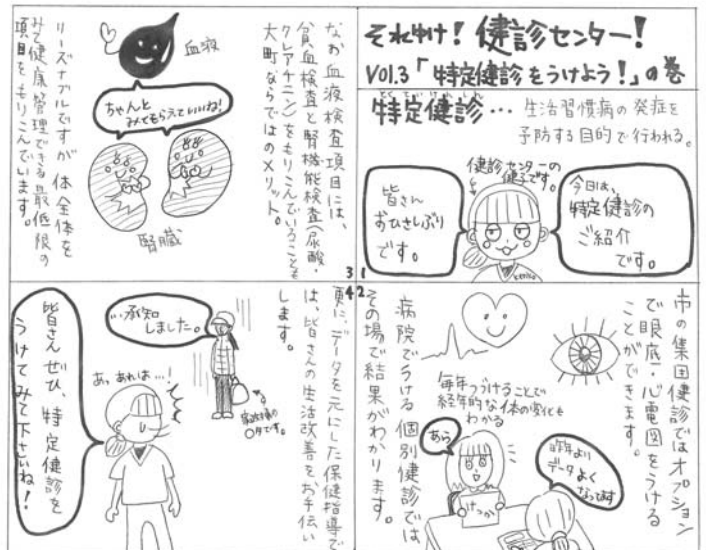 それゆけ！健診センター！
Vol.3「特定健診をうけよう！」の巻
とくていけんしん
特定健診…生活習慣病の発症を
予防する目的で行われる。
1
健診センターの
健子です。
今日は、
特定健診の
ご紹介
です。
皆さん
おひさしぶり
です。
2
市の集団健診ではオプション
で眼底・心電図をうける
ことができます。
病院でうける個別健診では
その場で結果がわかります。
毎年つづけることで
経年的な体の変化も
わかる
あら
けっか
昨年より
データよく
なってます
3
なお血液検査項目には、
貧血検査と腎機能検査(尿酸・
クレアチニン)をもりこんでいることも
大町ならではのメリット。
血液
ちゃんと
みてもらえていいね！
腎臓
リーズナブルですが体全体を
みて健康管理できる最低限の
項目をもりこんでいます。
4
更に、データを元にした保健指導で
は、皆さんの生活改善をお手伝い
します。
…承知
しました。
〇夕です。
あっあれは…！
皆さんぜひ、特定健診を
うけてみて下さいね！